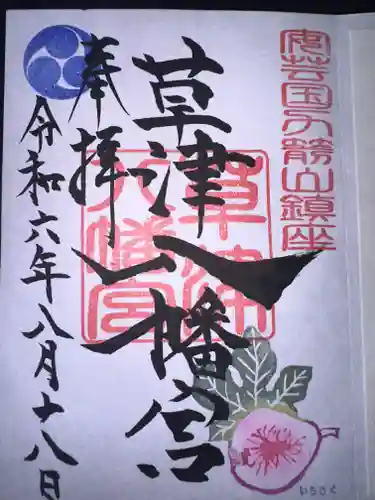 安芸国力勝山鎮座
草津八幡宮
草津八幡宮
奉拝
令和六年八月十八日
いちじく